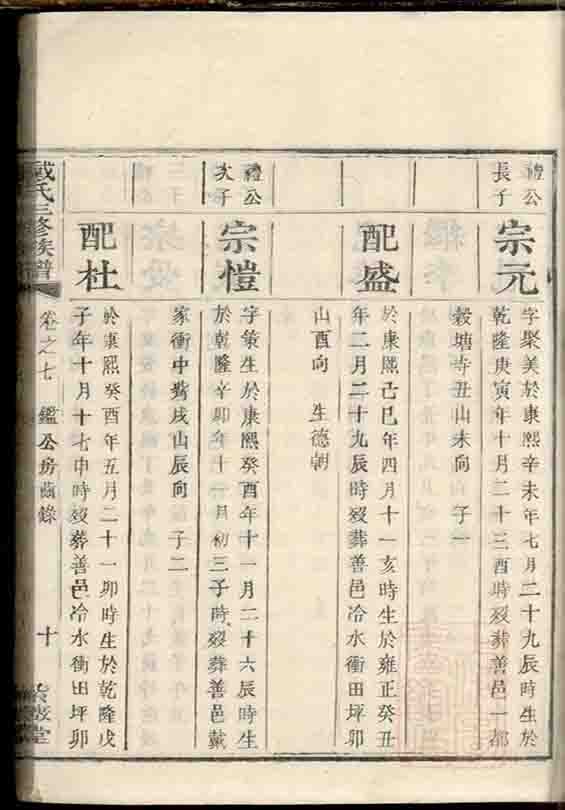 禮公
長子
宗元
字聚美於康熙辛未年七月二十九辰時生於
乾隆庚寅年十月二十三酉時歿葬善邑一都
穀塘寺丑山未向 子一
配盛
於康熙己巳年四月十一亥時生於雍正癸丑
年二月二十九辰時歿葬善邑冷水衝田坪卯
山酉向 生德朝
禮公
次子
宗愷
字策生於康熙癸酉年十一月二十六辰時生
於乾隆辛卯年十一月初三子時歿葬善邑戴
家衝中嘴戌山辰向 子二
配杜
於康熙癸酉年五月二十一卯時生於乾隆戊
子年十月十七申時歿葬善邑冷水衝田坪卯
戴氏三修族譜
卷之七 鑑公房齒錄 十
堂